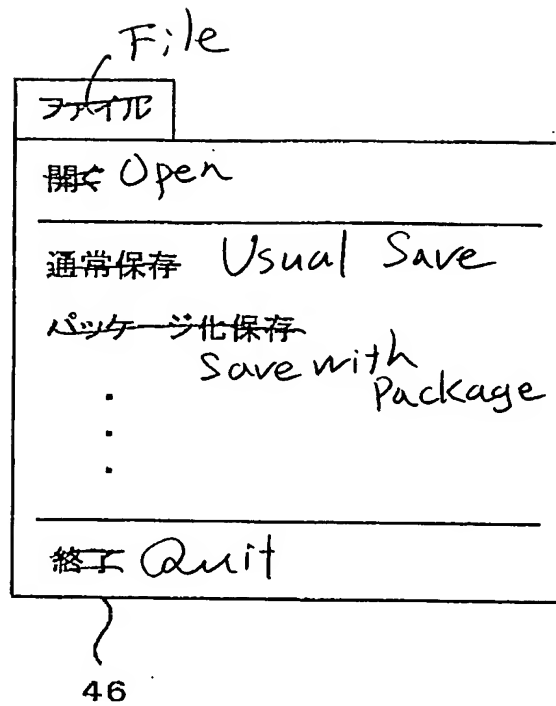 File
ファイル
開く Open
通常保存 Usual Save
パッケージ化保存
Save with
Package
終了 Quit
46